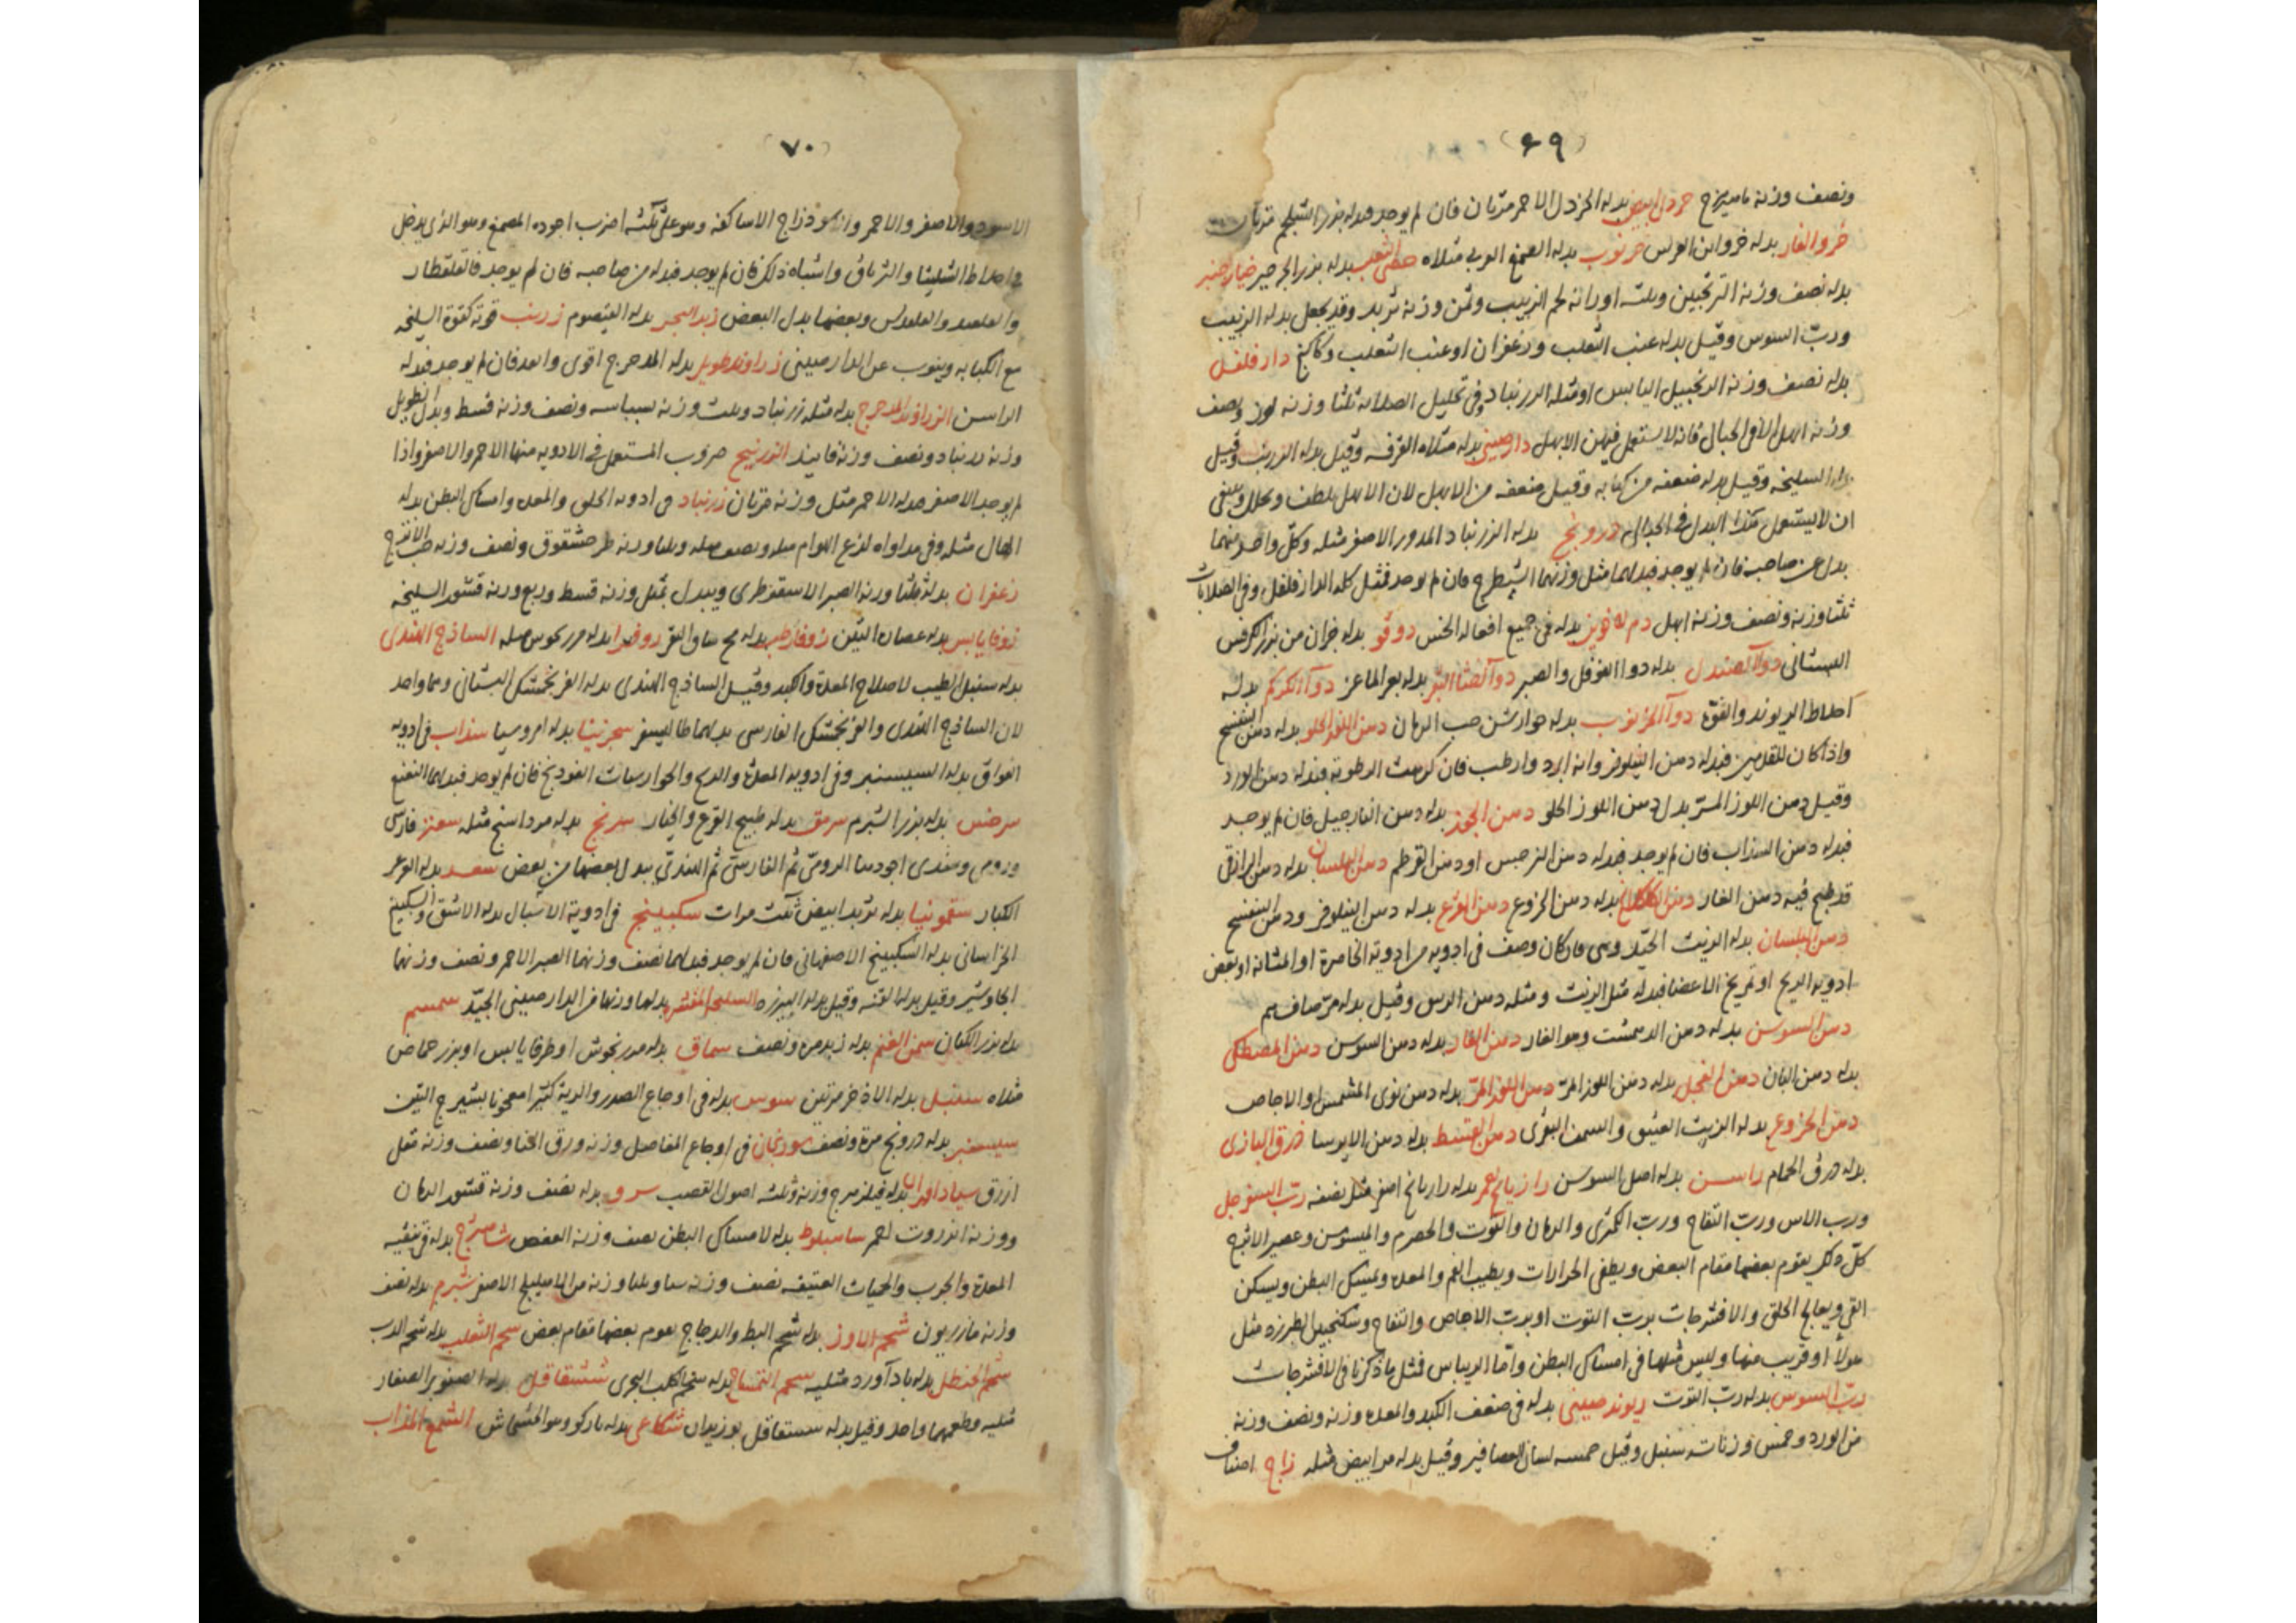 (٦٩)
ونصف وزنه ماميرج خردل ابيض بدله الخردل الاحمر مرتان فان لم يوجد فبدله بزر الشلجم مرتان
خرو الفار بدله خرو ابن العرس خرنوب بدله الصمغ العربي مثلاه خصى الثعلب بدله بزر الجرجير خيار شنبر
بدله نصف وزنه الترنجبين وثلثه اوزانه لحم الزبيب وثمن وزنه تربد وقد يجعل بدله الزبيب
ورب السوس وقيل بدله عنب الثعلب وزعفران او عنب الثعلب وكاكنج دار فلفل
بدله نصف وزنه الزنجبيل اليابس او مثله الزرنباد وفي تحليل الصلابه ثلثا وزنه لوز ونصف
وزنه ابهل الا في الحبالى فانه لا يستعمل فيهن الابهل دارصيني بدله مثلاه القرفه وقيل بدله الزرنب وقيل
بدله السليخه وقيل بدله ضعفه من كبابه وقيل ضعفه من الابهل لان الابهل يلطف ويحلل وينبغي
ان لا يستعمل هذا البدل في الحبالى درونج بدله الزرنباد المدور الاصفر مثله وكل واحد منهما
بدل عن صاحبه فان لم يوجد فبدلهما مثل وزنهما الشيطرج فان لم يوجد فمثل كله الدار فلفل وفي الصلابات
ثلثا وزنه ونصف وزنه ابهل دم الاخوين بدله في جميع افعاله الخس دوقو بدله جزان من بزر الكرفس
البستاني دوآ الصندل بدله دوا الفوفل والصبر دوآ القثا البري بدله بعر الماعز دوآ الكركم بدله
اخلاط الريوند والفوه دوآ الخرنوب بدله جوارشن حب الرمان دهن اللوز الحلو بدله دهن البنفسج
واذا كان للقدمين فبدله دهن النيلوفر وانه ابرد وارطب فان كرهت الرطوبة فبدله دهن الورد
وقيل دهن اللوز المر بدل دهن اللوز الحلو دهن الجوز بدله دهن النارجيل فان لم يوجد
فبدله دهن السذاب فان لم يوجد فبدله دهن النرجس او دهن القرطم دهن البلسان بدله دهن الرازقي
قد طبخ فيه دهن الغار دهن بدله دهن الخروع دهن القرع بدله دهن النيلوفر ودهن البنفسج
دهن البلسان بدله الزيت الجيد ومتى ما كان وصف في ادويه من ادوية الخاصرة او المثانه او بعض
ادويه الريح او تمريخ الاعضا فبدله مثل الزيت ومثله دهن الرس وقيل بدله مر صاف
دهن السوسن بدله دهن الدهمشت وهو الغار دهن الغار بدله دهن السوسن دهن المصطكى
بدله دهن البان دهن الفجل بدله دهن اللوز المر دهن اللوز المر بدله دهن نوى المشمش او الاجاص
دهن الخروع بدله الزيت العتيق والسمن البقري دهن القسط بدله دهن الايرسا ذرق البازي
بدله ذرق الحمام راسن بدله اصل السوسن رازيانج بدله رازيانج اصفر مثل نصفه رب السفرجل
ورب الاس ورب التفاح ورب الكمثرى والرمان والتوت والحصرم والميسوسن وعصير الاترج
كل ذلك يقوم بعضها مقام البعض ويطفي الحرارات ويطيب الفم والمعده ويمسك البطن ويسكن
القي ويعالج الحلق والافشرجات برب التوت او برب الاجاص والتفاح وسكنجبين الطبرزد مثل
هولا او قريب منها وليس مثلها في امساك البطن واما الريباس فمثل ما ذكرنا في الافشرجات
رب السوس بدله رب التوت ريوند صيني بدله في ضعف الكبد والمعده وزنه ونصف وزنه
من الورد وخمس وزنات سنبل وقيل خمسه لسان العصافير وقيل بدله مثله زاج اصناف
(٧٠)
الاسود والاصفر والاحمر زاج الاساكفه وهو على ثلثه اضرب اجوده المصمغ وهو الذي يدخل
في اخلاط الشليثا والترياق واشباه ذلك فان لم يوجد فبدله من صاحبه فان لم يوجد فالقلقطار
والقلقند والقلقديس وبعضها بدل البعض زبد البحر بدله القيصوم زرنب قوته كقوة السليخه
مع الكبابه وينوب عن الدارصيني زراوند طويل بدله المدحرج اقوى وابعد فان لم يوجد فبدله
الراسن الزراوند المدحرج بدله مثله زرنباد وثلث وزنه بسباسه ونصف وزنه قسط وبدل الطويل
وزنه زرنباد ونصف وزنه فانيذ الزرنيخ ضروب المستعمل في الادويه منها الاحمر والاصفر واذا
لم يوجد الاصفر فبدله الاحمر مثل وزنه مرتان زرنباد في ادويه الحلق والمعده وامساك البطن بدله
الهال مثله وفي مداواه لذع الهوام مثله ونصف مثله وثلثا وزنه طرحشقوق ونصف وزنه حب الاترج
زعفران بدله ثلثا وزنه الصبر الاسقوطرى ويبدل بمثل وزنه قسط وربع وزنه قشور السليخه
زوفا يابس بدله عصاره التين زوفا رطب بدله مخ ساق البقر بدله مثله الساذج الهندي
بدله سنبل الطيب لاصلاح المعدة والكبد وقيل الساذج الهندي بدله الفرنجمشك البستاني وهما واحد
لان الساذج الهندي والفرنجمشك الفارسي بدلهما طاليسفر سجزنيا بدله امروسيا سذاب في ادويه
الفواق بدله السيسنبر وفي ادويه المعدة والريح والجوارشات الفودنج فان لم يوجد فبدلهما النعنع
سرخس بدله بزر الشبرم سرمق بدله طبيخ القرع والخيار سرنج بدله مرداسنج مثله سعتر فارسي
ورومي وهندي اجودها الرومي ثم الفارسي ثم الهندي بدل بعضها من بعض سعد بدله العرعر
الكبار سقمونيا بدله تربد ابيض ثلث مرات سكبينج في ادوية الاسهال بدله الاشق والسكبينج
الخراساني بدله السكبينج الاصفهاني فان لم يوجد فبدلهما نصف وزنهما الصبر الاحمر ونصف وزنهما
الجاوشير وقيل بدله القنه وقيل بدله البيرزد السليخه المقشره بدلها وزنها من الدارصيني الجيد سمسم
بدله بزر الكتان سمن الغنم بدله زبد مره ونصف سماق بدله مرزنجوش او طرفا يابس او بزر حماض
مثلاه سنبل بدله الاذخر مرتين سوس بدله في اوجاع الصدر والرية كثيرا معجونا بشيرج التين
سيسنبر بدله درونج مرة ونصف سورنجان في اوجاع المفاصل وزنه ورق الحنا ونصف وزنه مقل
ازرق سياداوران بدله فيلزهرج وزنه وثلثه اصول القصب سرو بدله نصف وزنه قشور الرمان
ووزنه انزروت احمر شاه بلوط بدله لامساك البطن نصف وزنه العفص شاهترج بدله في تنقيه
المعدة والجرب والحميات العتيقه نصف وزنه سنا وثلثا وزنه من الهليلج الاصفر شبرم بدله نصف
وزنه مازريون شحم الاوز بدله شحم البط والدجاج يقوم بعضها مقام بعض شحم الثعلب بدله شحم الدب
شحم الحنظل بدله باد آورد مثليه شحم التمساح بدله شحم الكلب البحري ششقاقل بدله الصنوبر الصغار
مثليه وطعمهما واحد وقيل بدله ششقاقل بوزيدان شكاعى بدله باد آورد وهو الشمع المذاب